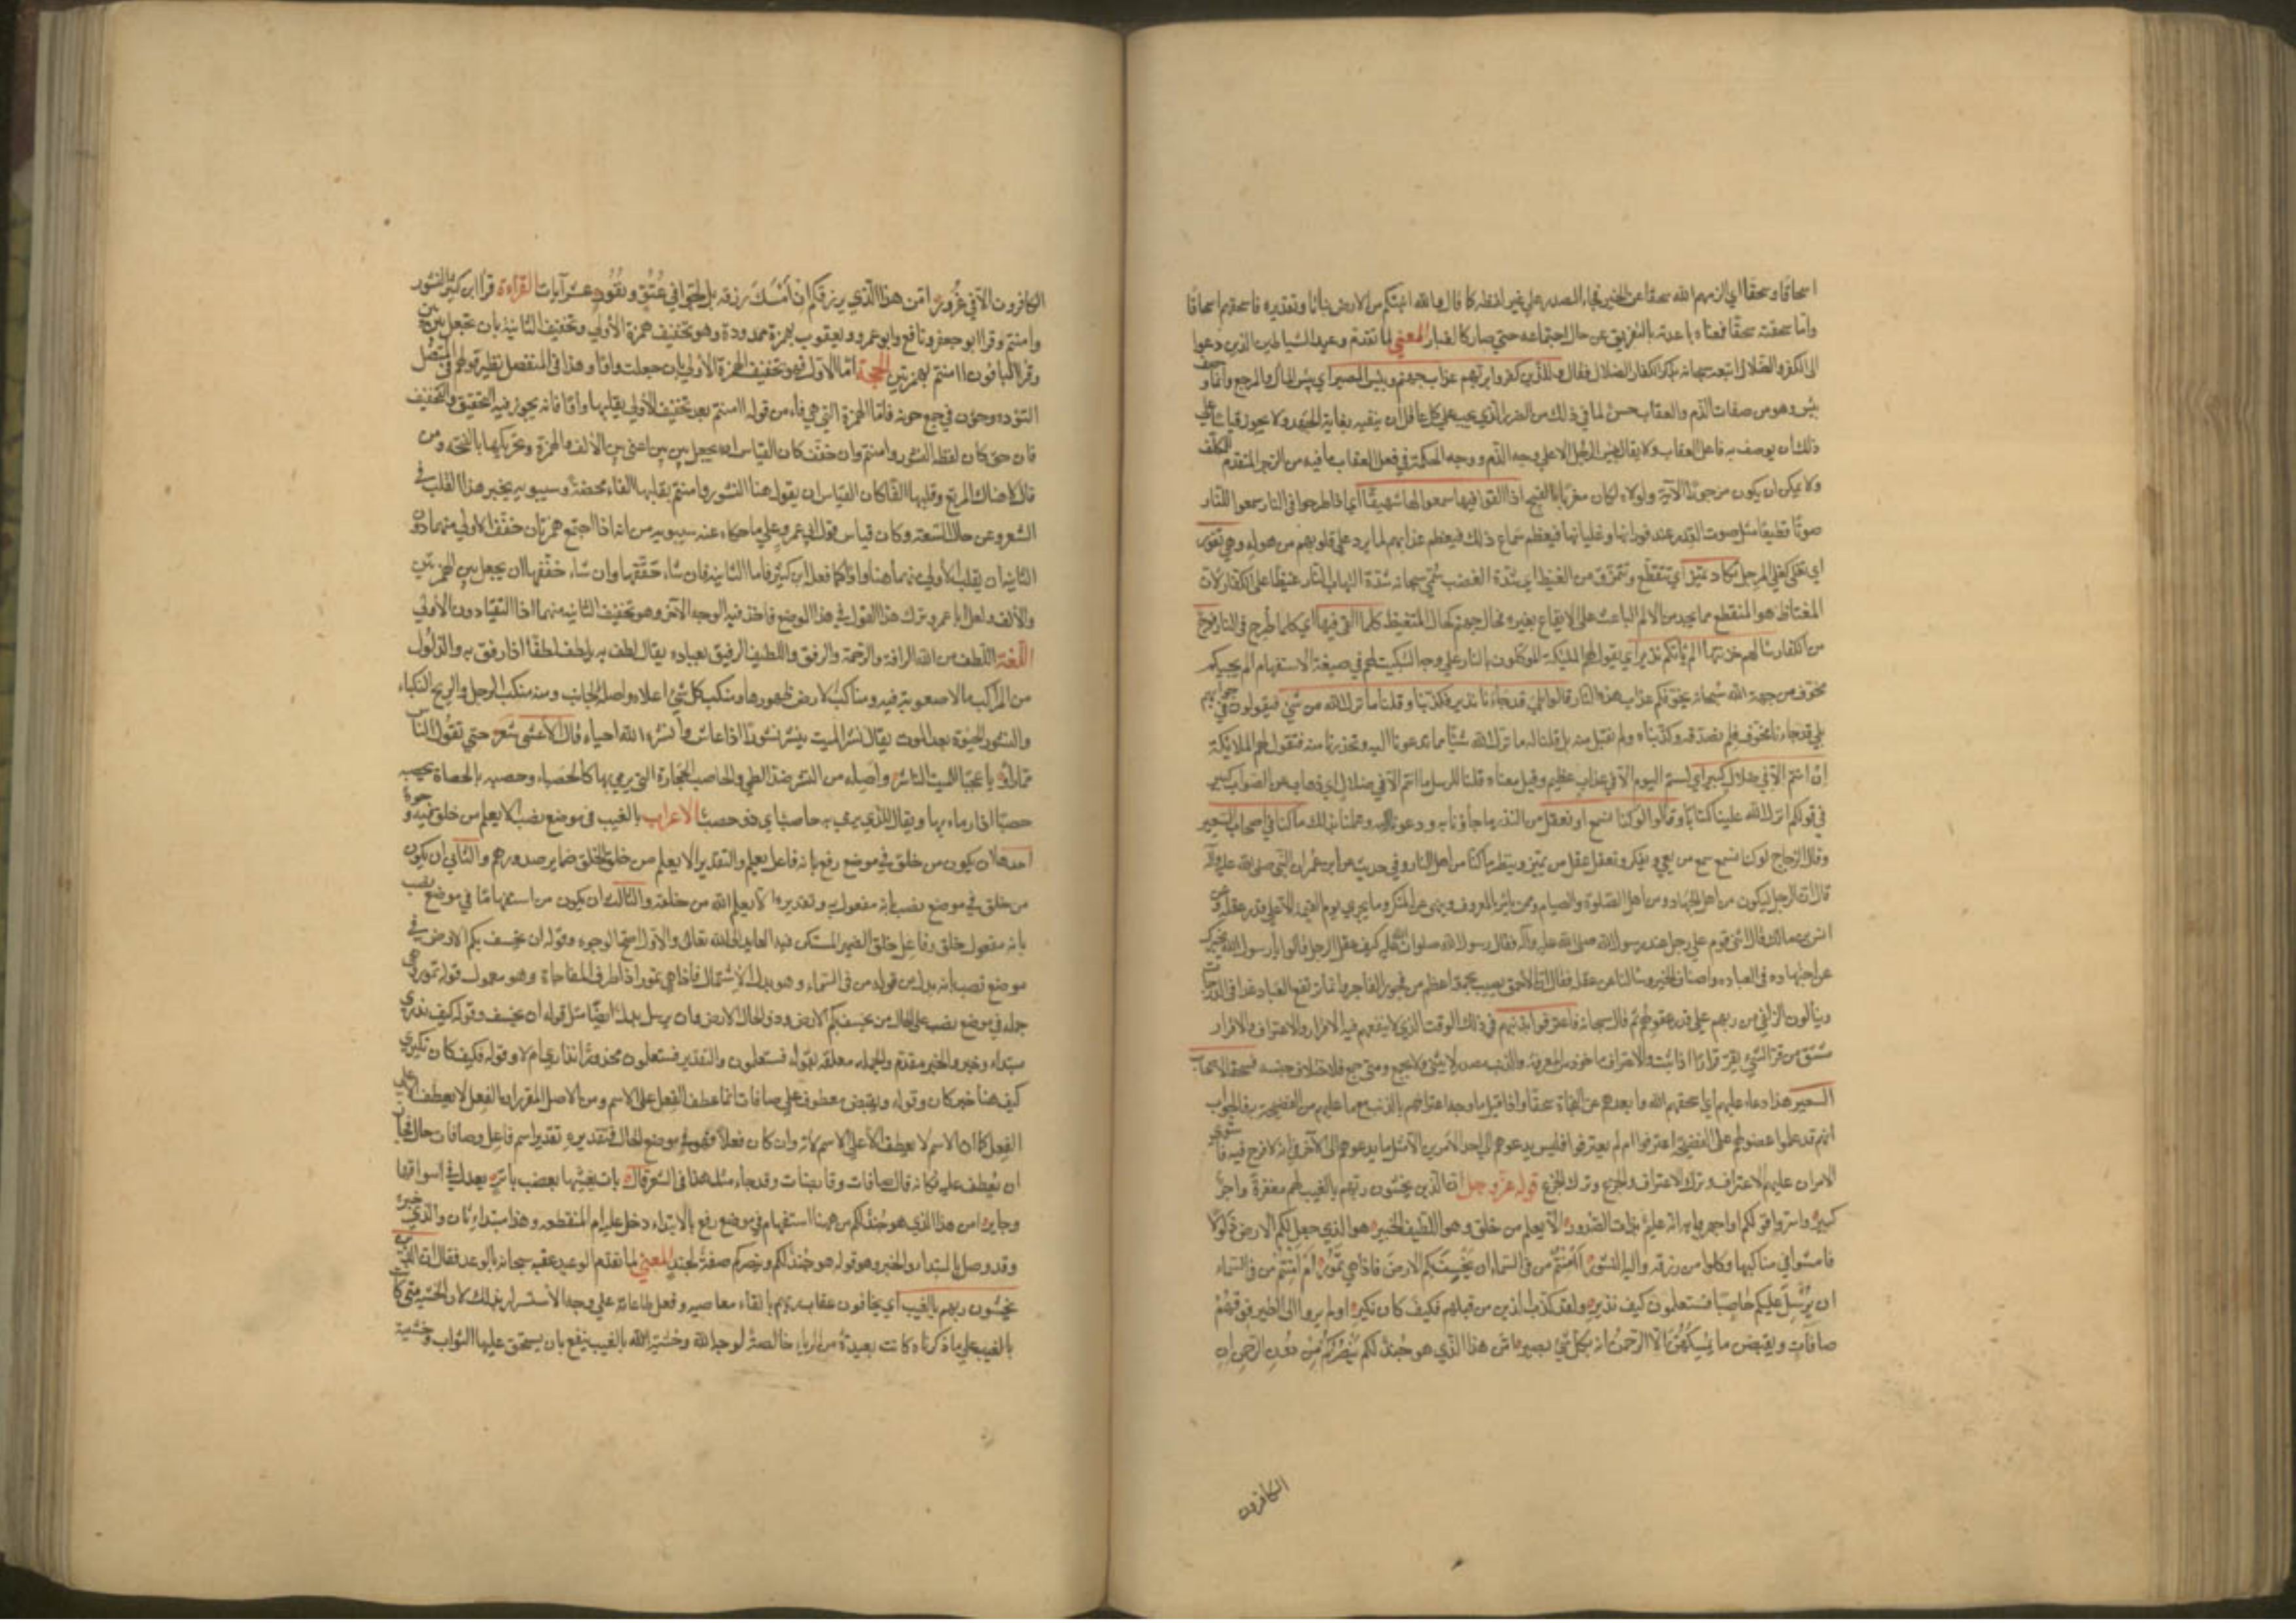 اسحاقا وسحقا اي الزمهم الله سحقا عن الخير فجاء المصدر علي غير لفظه كما قال والله انبتكم من الارض نباتا وتقديره فاسحقهم اسحاقا
واما سحقته سحقا فمعناه باعدته بالتفريق عن حال اجتماعه حتي صار كالغبار المعني لما تقدم وعيد الشياطين الذين دعوا
الي الكفر والضلال اتبعه سبحانه بذكر الكفار الضلال فقال وللذين كفروا بربهم عذاب جهنم وبئس المصير اي بئس المال والمرجع وانما وصف
ببئس وهو من صفات الذم والعقاب حسن لما في ذلك من الضرر الذي يجب علي كل عاقل ان يتقيه بغاية الجهد ولا يجوز قياسا علي
ذلك ان يوصف به فاعل العقاب ولا يقال بئس الرجل الا علي وجه الذم ووجه الحكمة في فعل العقاب ما فيه من الزجر المتقدم للمكلف
ولا يمكن ان يكون مزجورا الا به ولولاه لكان مغريا بالقبيح اذا القوا فيها سمعوا لها شهيقا اي اذا طرحوا في النار سمعوا للنار
صوتا فظيعا مثل صوت القدر عند فورانها وغليانها فيعظم بسماع ذلك فيعظم عذابهم لما يرد علي قلوبهم من هوله وهي تفور
اي تغلي كغلي المرجل تكاد تميز اي تتقطع وتتمزق من الغيظ اي شدة الغضب سمي سبحانه شدة التهاب النار غيظا علي الكفار لان
المغتاظ هو المتقطع مما يجد من الالم الباعث علي الايقاع بغيره فحال جهنم كحال المتغيظ كلما القي فيها اي كلما طرح في النار فوج
من الكفار سالهم خزنتها الم ياتكم نذير اي يقول لهم الملئكة الموكلون بالنار علي وجه التبكيت لهم في صيغة الاستفهام الم يجيكم
مخوف من جهة الله سبحانه يخوفكم عذاب هذه النار قالوا بلي قد جاءنا نذير فكذبنا وقلنا ما نزل الله من شئ فيقولون في جوابهم
بلي قد جاءنا مخوف فلم نصدقه وكذبناه ولم نقبل منه بل قلنا له ما نزل الله شيئا مما تدعونا اليه وتحذرنا منه فتقول لهم الملائكة
ان انتم الا في ضلال كبير اي لستم اليوم الا في عذاب عظيم وقيل معناه قلنا للرسل ما انتم الا في ضلال اي ذهاب عن الصواب كبير
في قولكم انزل الله علينا كتابا وقالوا لو كنا نسمع او نعقل من النذر ما جاؤنا به ودعونا اليه وعملنا بذلك ما كنا في اصحاب السعير
وقال الزجاج لو كنا نسمع سمع من يعي ويفكر ونعقل عقل من يميز وينظر ما كنا من اهل النار وفي حديث عن ابن عمر ان النبي صلي الله عليه وآله
قال ان الرجل ليكون من اهل الجهاد ومن اهل الصلوة والصيام وممن يامر بالمعروف وينهي عن المنكر وما يجزي يوم القيمة الا علي قدر عقله وعن
انس بن مالك قال اثني قوم علي رجل عند رسول الله صلي الله عليه وآله فقال رسول الله صلوات الله عليه كيف عقل الرجل قالوا يا رسول الله نخبرك
عن اجتهاده في العباده واصناف الخير وتسالنا عن عقله فقال ان الاحمق يصيب بحمقه اعظم من فجور الفاجر وانما يرتفع العباد غدا في الدرجات
وينالون الزلفي من ربهم علي قدر عقولهم ثم قال سبحانه فاعترفوا بذنبهم في ذلك الوقت الذي لا ينفعهم فيه الاقرار والاعتراف والاقرار
مشتق من قر الشئ يقر قرارا اذا ثبت والاعتراف ماخوذ من المعرفة والذنب مصدر لا يثني ولا يجمع ومتي جمع فلاختلاف جنسه فسحقا لاصحاب
السعير هذا دعاء عليهم اي اسحقهم الله وابعدهم عن النجاة سحقا واذا قيل ما وجه اعترافهم بالذنب مع ما عليهم من الفضيحة به فالجواب
انهم قد علموا حصولهم علي الفضيحة اعترفوا ام لم يعترفوا فليس يدعوهم الي احد الامرين الا مثل ما يدعوهم الي الآخر في انه لا فرج فيه فاستوي
الامران عليهم الاعتراف وترك الاعتراف والجزع وترك الجزع قوله عز وجل ان الذين يخشون ربهم بالغيب لهم مغفرة واجر
كبير واسروا قولكم او اجهروا به انه عليم بذات الصدور الا يعلم من خلق وهو اللطيف الخبير هو الذي جعل لكم الارض ذلولا
فامشوا في مناكبها وكلوا من رزقه واليه النشور أامنتم من في السماء ان يخسف بكم الارض فاذا هي تمور ام امنتم من في السماء
ان يرسل عليكم حاصبا فستعلمون كيف نذير ولقد كذب الذين من قبلهم فكيف كان نكير اولم يروا الي الطير فوقهم
صافات ويقبضن ما يمسكهن الا الرحمن انه بكل شئ بصير امن هذا الذي هو جند لكم ينصركم من دون الرحمن ان
الكافرون
الكافرون الا في غرور امن هذا الذي يرزقكم ان امسك رزقه بل لجوا في عتو ونفور عشر آيات القراءة قرا ابن كثير النشور
وامنتم وقرا ابو جعفر ونافع وابو عمرو ويعقوب بهمزة ممدودة وهو تخفيف همزة الأولي وتخفيف الثانية بان تجعل بين بين
وقرا الباقون اامنتم بهمزتين الحجة اما الاول فهو تخفيف الهمزة الأولي بان جعلت واوا وهذا في المنفصل نظير قولهم في المتصل
التؤده وجؤن في جمع جونه فاما الهمزة التي هي فاء من قوله اامنتم بعد تخفيف الأولي بقلبها واوا فانه يجوز فيه التحقيق والتخفيف
فان حقق كان لفظه النشور وامنتم وان خفف كان القياس ان يجعل بين بين اعني بين الألف والهمزة وتحريكها بالفتحة ومن
قال لا هناك المرتع وقلبها الفا كان القياس ان يقول هنا النشور وامنتم بقلبها الفا محضة وسيبويه يجيز هذا القلب في
الشعر وعن حال السعة وكان قياس قول ابي عمرو علي ما حكاه عنه سيبويه من انه اذا اجتمع همزتان خفف الاولي منهما دون
الثانية ان يقلب الأولي منهما هنا واوا كما فعل ابن كثير فاما الثانية فان شاء حققها وان شاء خففها ان يجعل بين الهمزتين
والألف ولعل ابا عمرو ترك هذا القول في هذا الموضع فاخذ فيه الوجه الآخر وهو تخفيف الثانية منهما اذا التقيا دون الأولي
اللغة اللطف من الله الرافة والرحمة والرفق واللطيف الرفيق بعباده يقال لطف به يلطف لطفا اذا رفق به والذلول
من المراكب ما لا صعوبة فيه ومناكب الارض ظهورها ومنكب كل شئ اعلاه واصله الجانب ومنه منكب الرجل والريح النكباء
والنشور الحيوة بعد الموت يقال نشر الميت ينشر نشورا اذا عاش وانشره الله احياه قال الأعشي شعر حتي تقول الناس
مما راوا يا عجبا للميت الناشر واصله من النشر ضد الطي والحاصب الحجارة التي يرمي بها كالحصباء وحصبه بالحصاة يحصبه
حصبا اذا رماه بها ويقال للذي يرمي به حاصب اي ذو حصب الاعراب بالغيب في موضع نصب الا يعلم من خلق فيه وجوه
احدها ان يكون من خلق في موضع رفع بانه فاعل يعلم والتقدير الا يعلم من خلق الخلق ضماير صدورهم والثاني ان يكون
من خلق في موضع نصب بانه مفعول به وتقديره الا يعلم الله من خلقه والثالث ان يكون من استفهاما في موضع نصب
بانه مفعول خلق وفاعل خلق الضمير المستكن فيه العايد الي الله تعالي والاول اصح الوجوه وقوله ان يخسف بكم الارض في
موضع نصب بانه بدل من قوله من في السماء وهو بدل الاشتمال فاذا هي تمور اذا ظرف المفاجاة وهو معمول قوله تمور وهي
جمله في موضع نصب علي الحال من يخسف بكم الارض وذو الحال الارض وان يرسل بدل ايضا مثل قوله ان يخسف وقوله كيف نذيري
مبتداء وخبر والخبر مقدم والجمله معلقه بقوله فستعلمون والتقدير فستعلمون محذورا نذاري ام لا وقوله فكيف كان نكيري
كيف هنا خبر كان وقوله ويقبضن معطوف علي صافات انما عطف الفعل علي الاسم ومن الاصل المقرر ان الفعل لا يعطف الا علي
الفعل كما ان الاسم لا يعطف الا علي الاسم لانه وان كان فعلا فهو في موضع الحال فتقديره تقدير اسم فاعل وصافات حال فجاز
ان يعطف عليه فكانه قال صافات وقابضات وقد جاء مثل هذا في الشعر قال بات يغشيها بعضب باتر يعدل في اسواقها
وجاير امن هذا الذي هو جند لكم من ههنا استفهام في موضع رفع بالابتداء دخل عليه ام المنقطعه وهذا مبتداء ثان والذي خبره
وقد وصل بالمبتداء والخبر وهو قوله هو جند لكم وينصركم صفة لجند المعني لما تقدم الوعيد عقبه سبحانه بالوعد فقال ان الذين
يخشون ربهم بالغيب اي يخافون عقاب ربهم باتقاء معاصيه وفعل طاعاته علي وجه الاستسرار بذلك لان الخشية متي كانت
بالغيب علي ما ذكرناه كانت بعيدة من الرياء خالصة لوجه الله وخشية الله بالغيب ينفع بان يستحق عليها الثواب وخشية